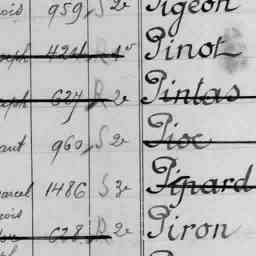 ois 959 S 2e Pigeon
seph 424 R 1er Pinot
seph 627 R 2e Pintas
ant 960 S 2e Pioc
arcel 1486 S 3e Pipard
çois
628 R 2e Piron